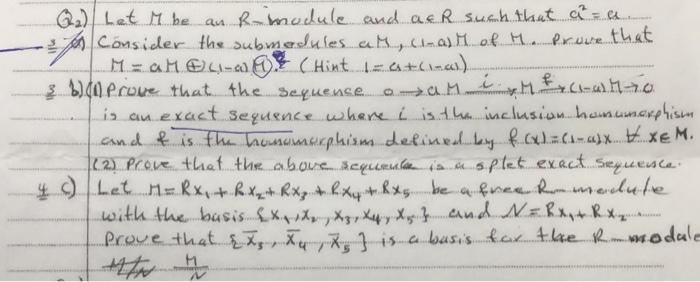 Q2) Let M be an R-module and a∈R such that a²=a
3 a) Consider the submodules aM, (1-a)M of M. Prove that
M = aM ⊕ (1-a)M (Hint 1=a+(1-a))
3 b) (1) Prove that the sequence o → aM →i M →f (1-a)M → o
is an exact sequence where i is the inclusion homomorphism
and f is the homomorphism defined by f(x)=(1-a)x ∀ x∈M.
(2) Prove that the above sequence is a splet exact sequence.
4 c) Let M=Rx₁+Rx₂+Rx₃+Rx₄+Rx₅ be a free R-module
with the basis {x₁,x₂,x₃,x₄,x₅} and N=Rx₁+Rx₂.
Prove that {x̄₃, x̄₄, x̄₅} is a basis for the R-module
M/N